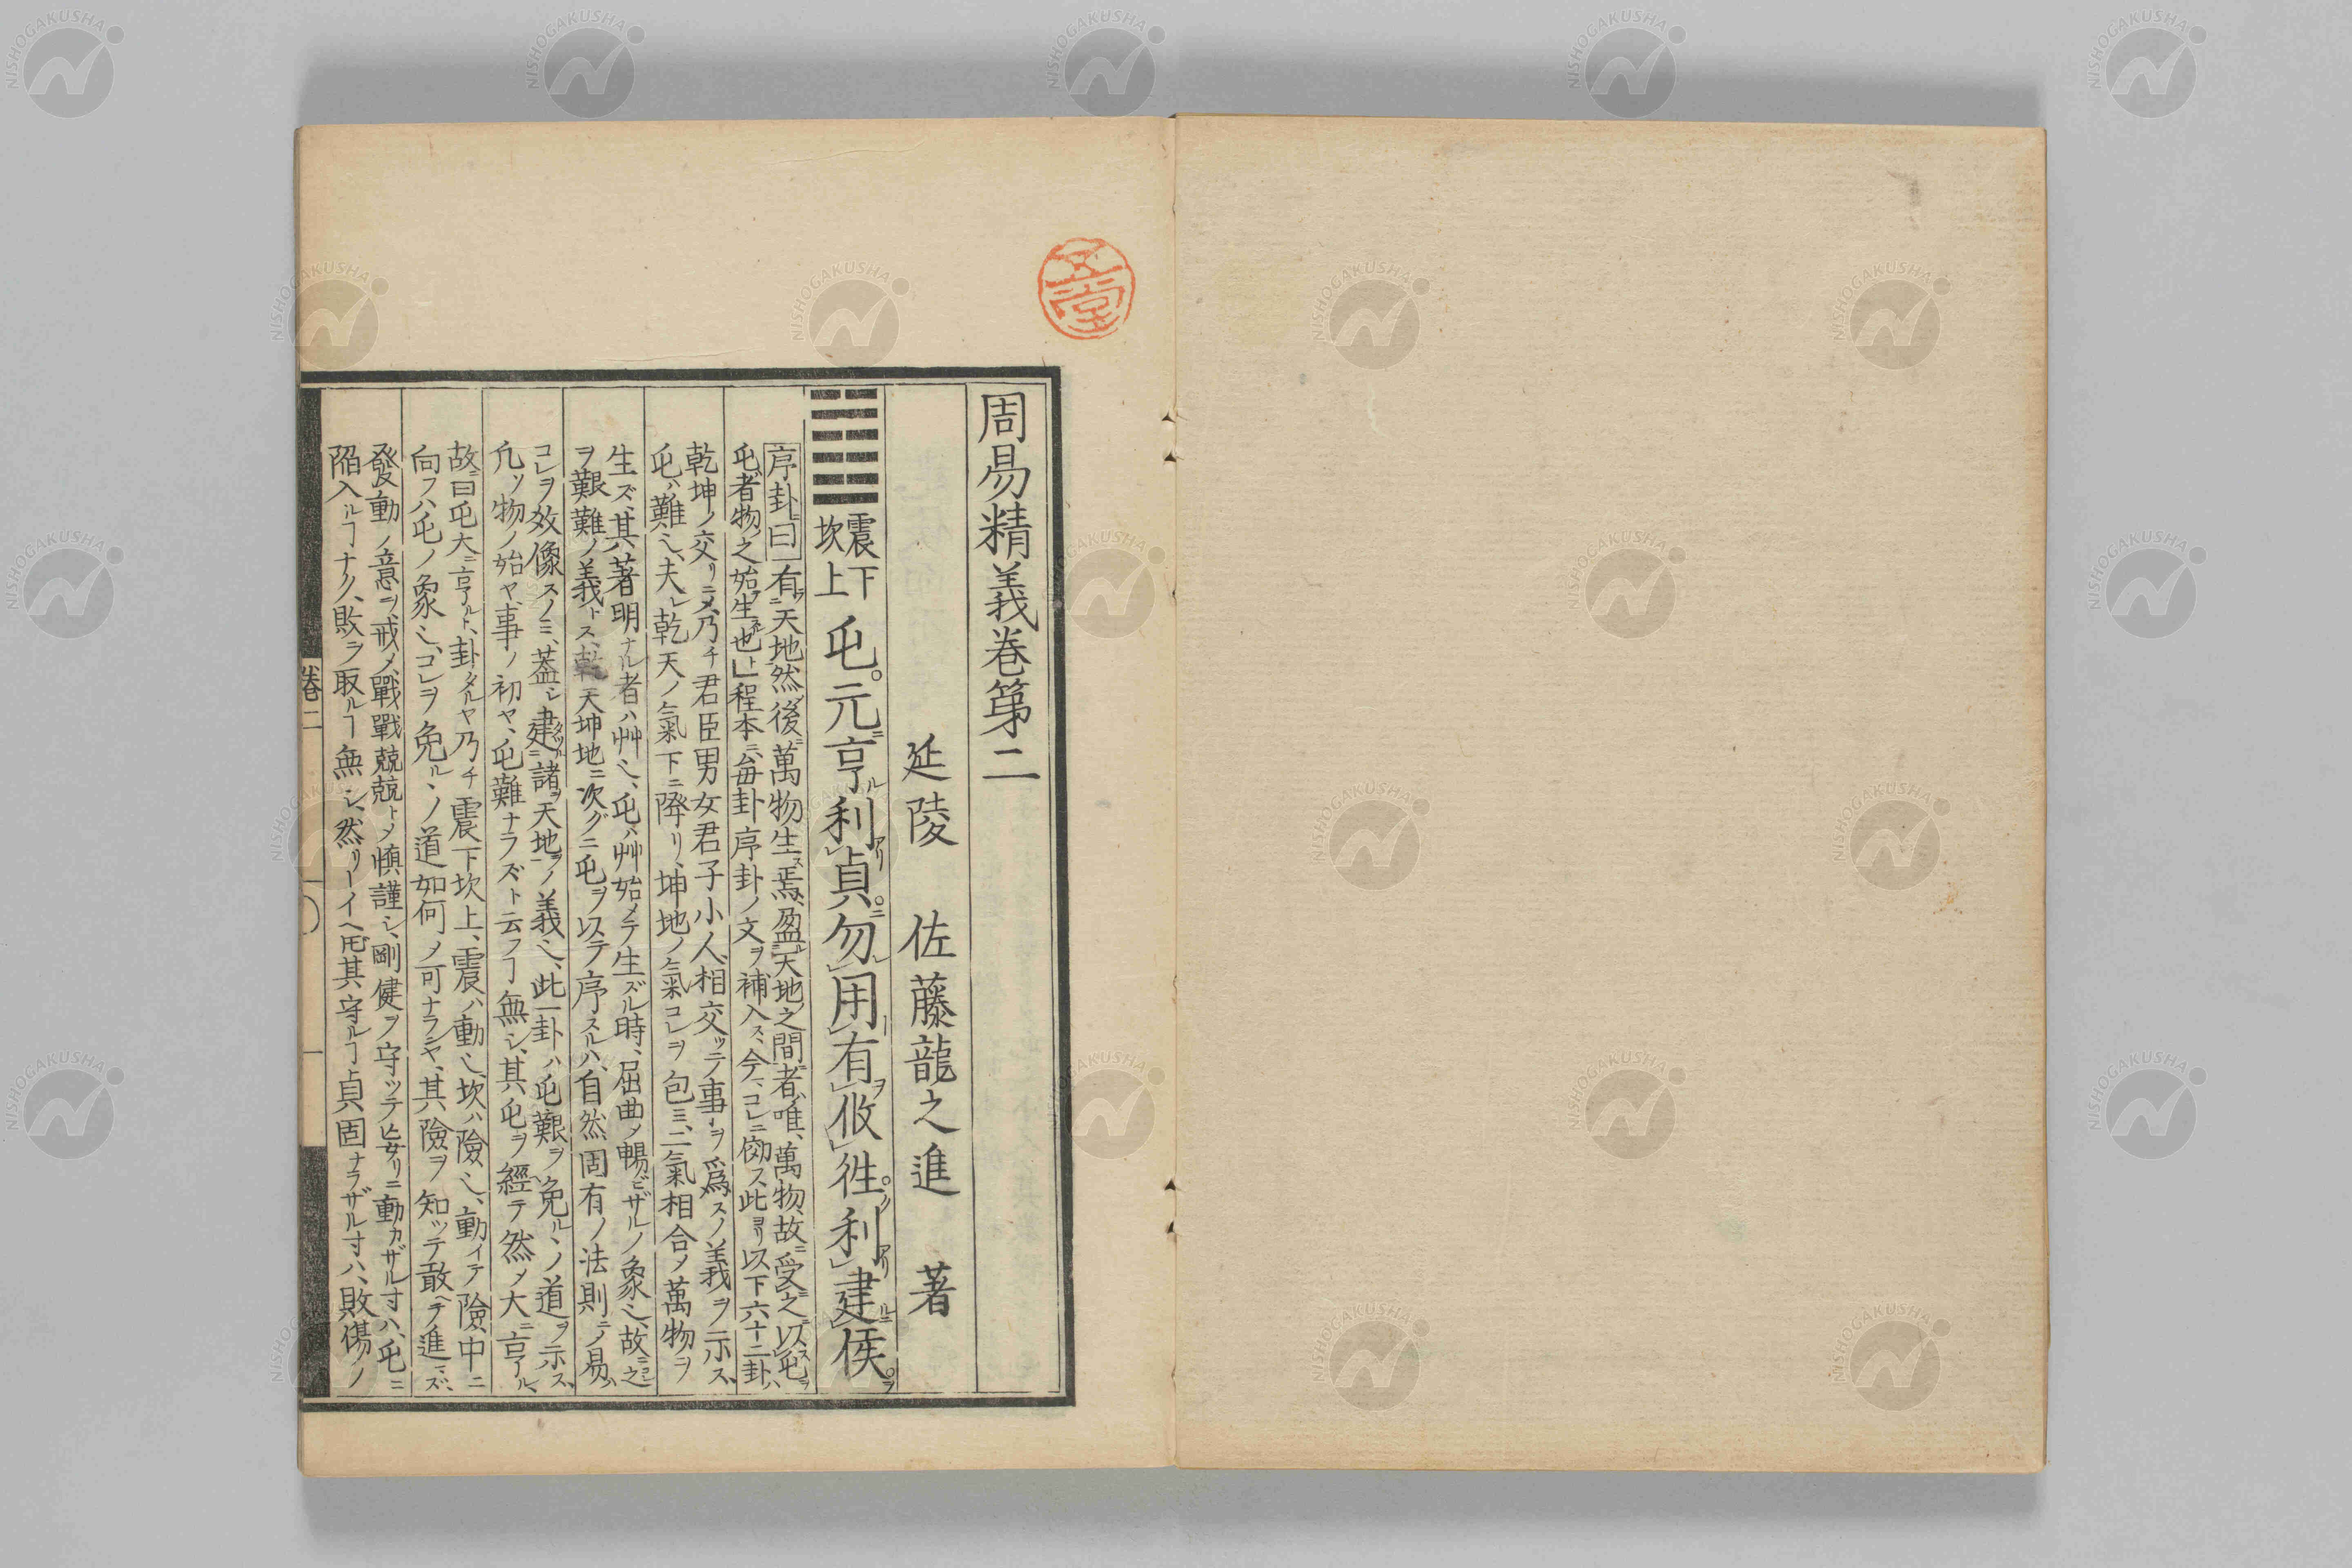 周易精義卷第二
延陵 佐藤龍之進 著
震下
坎上
屯。元亨利貞。勿用有攸往。利建侯。
序卦曰有天地然後萬物生焉、盈天地之間者唯、萬物、故受之以屯
屯者物之始生也程本ニ、每卦序卦ノ文ヲ補入ス、今、コレニ倣ス此ヨリ以下六十二卦ハ
乾坤ノ交リニ〆乃チ君臣男女君子小人相交ッテ事ヲ爲スノ義ヲ示ス、
屯ハ難、夫レ乾天ノ氣下ニ降リ、坤地ノ氣コレヲ包ミ、二氣相合〆萬物ヲ
生ズ、其著明ナル者ハ艸、屯ハ艸始メテ生ズル時、屈曲〆暢ビザルノ象、故ニ之
ヲ艱難ノ義トス、乾天坤地ニ次グニ屯ヲ以テ序スルハ、自然固有ノ法則ニ〆易ハ
コレヲ效像スノミ、蓋シ建諸天地ノ義、此一卦ハ屯艱ヲ免ルヽノ道ヲ示ス、
凡ソ物ノ始ヤ、事ノ初ヤ、屯難ナラズト云フヿ無シ、其屯ヲ經テ然〆大ニ亨ル、
故ニ曰屯大ニ亨ルト、卦タルヤ乃チ震下坎上、震ハ動、坎ハ險、動イテ險中ニ
向フハ屯ノ象、コレヲ免ルヽノ道如何〆可ナランヤ、其險ヲ知ッテ敢ヘテ進マズ、
發動ノ意ヲ戒メ、戰戰兢兢ト〆愼謹シ、剛健ヲ守ッテ妄リニ動カザル寸ハ、屯ニ
陷入ルヿナク、敗ヲ取ルヿ無シ、然リトイヘ𪜈其守ルヿ貞固ナラザル寸ハ、敗傷ノ
卷二
一